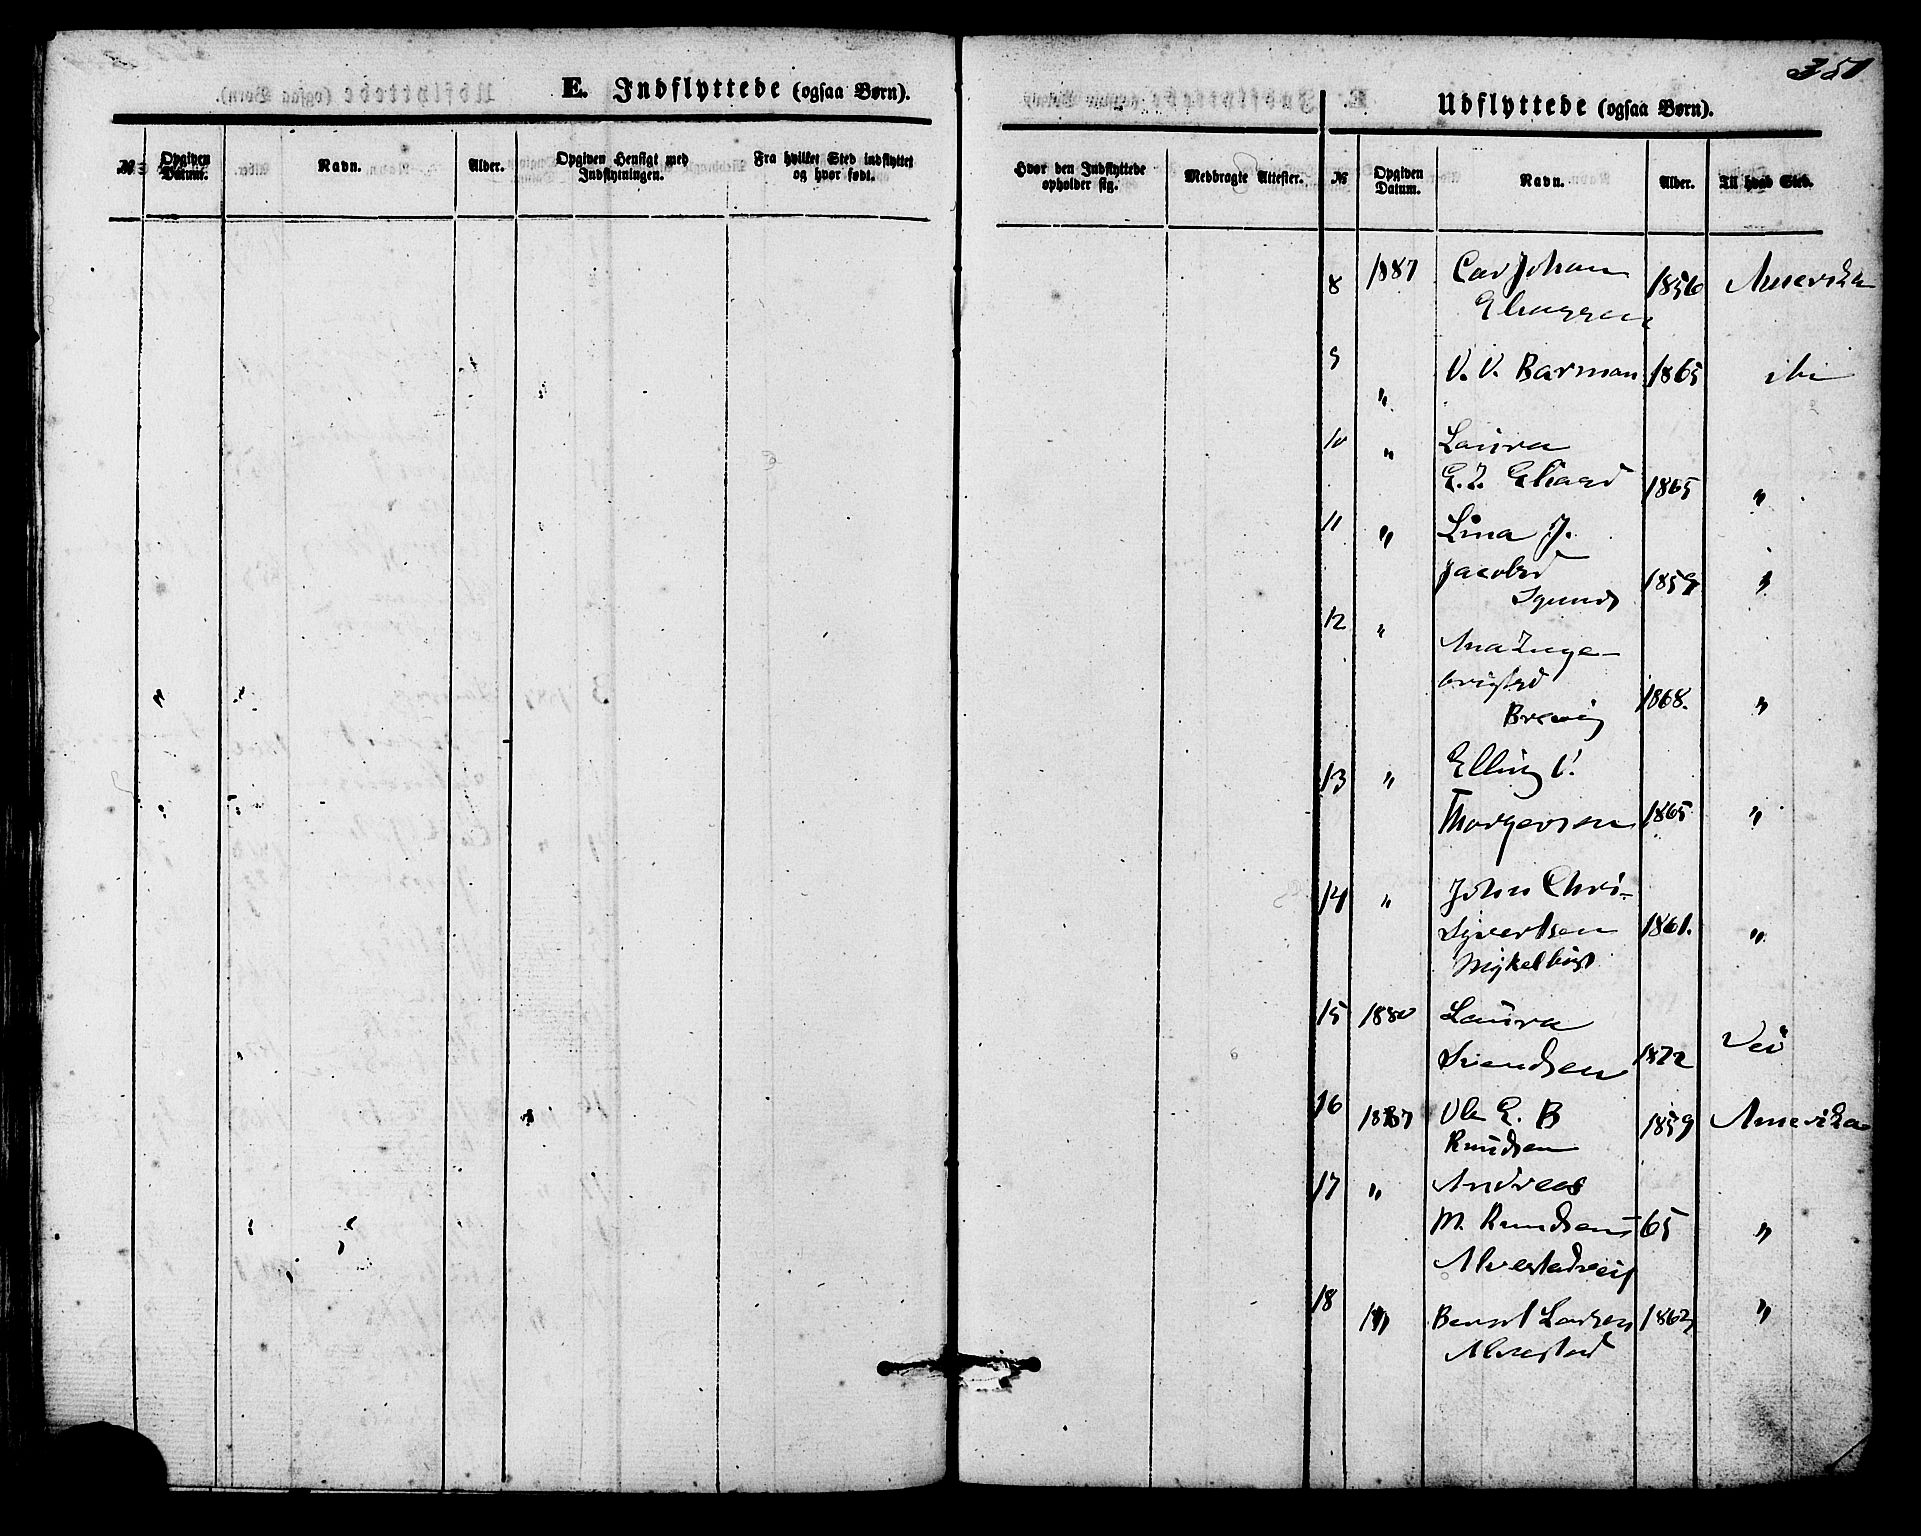 351
E. Indflyttede (ogsaa Børn).
№ Opgiven Datum. Navn. Alder. Opgiven Hensigt med Indflytningen. Fra hvilket Sted indflyttet og hvor født.
Hvor den Indflyttede opholder sig. Medbragte Attester.
Udflyttede (ogsaa Børn).
№ Opgiven Datum. Navn. Alder. Til hvad Sted.
8 1887 Carl Johan 1856 Amerika
9 " V. V. Barman 1865 ibi
10 " Laura
G. I. 1865 "
11 " Lina J.
Jacobsd 1859 "
12 " Ana Inge-
brigtsd
Brevig 1868. "
13 " Elling
Thorgersen 1865 "
14 " John Chri-
Syvertsen 1861. "
Mykelbust
15 1880 Laura
Svendsen 1872 Veö
16 1887 Ole E. B 1859 Amerika
Knudsen
17 " Andreas
M. Knudsen 65 "
Alvestadveig
18 " Bernt Larsen 1862 "
Alvestad